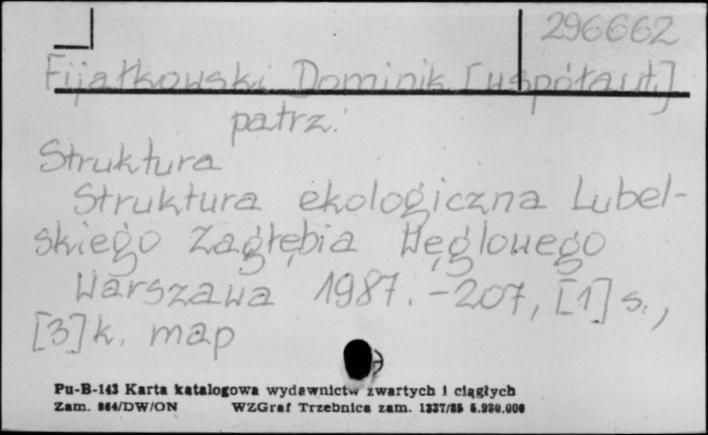 296662
Fijałkowski Dominik [współaut.]
patrz:
Struktura
Struktura ekologiczna Lubel-
skiego Zagłębia Węglowego
Warszawa 1987. - 207, [1] s.,
[3] k. map
Pu-B-143 Karta katalogowa wydawnictw zwartych i ciągłych
Zam. 864/DW/ON WZGraf Trzebnica zam. 1337/85 5.920.000